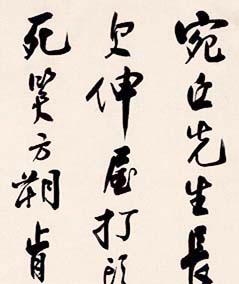 宛丘先生長
欠伸屋打頭
死笑方朔肯